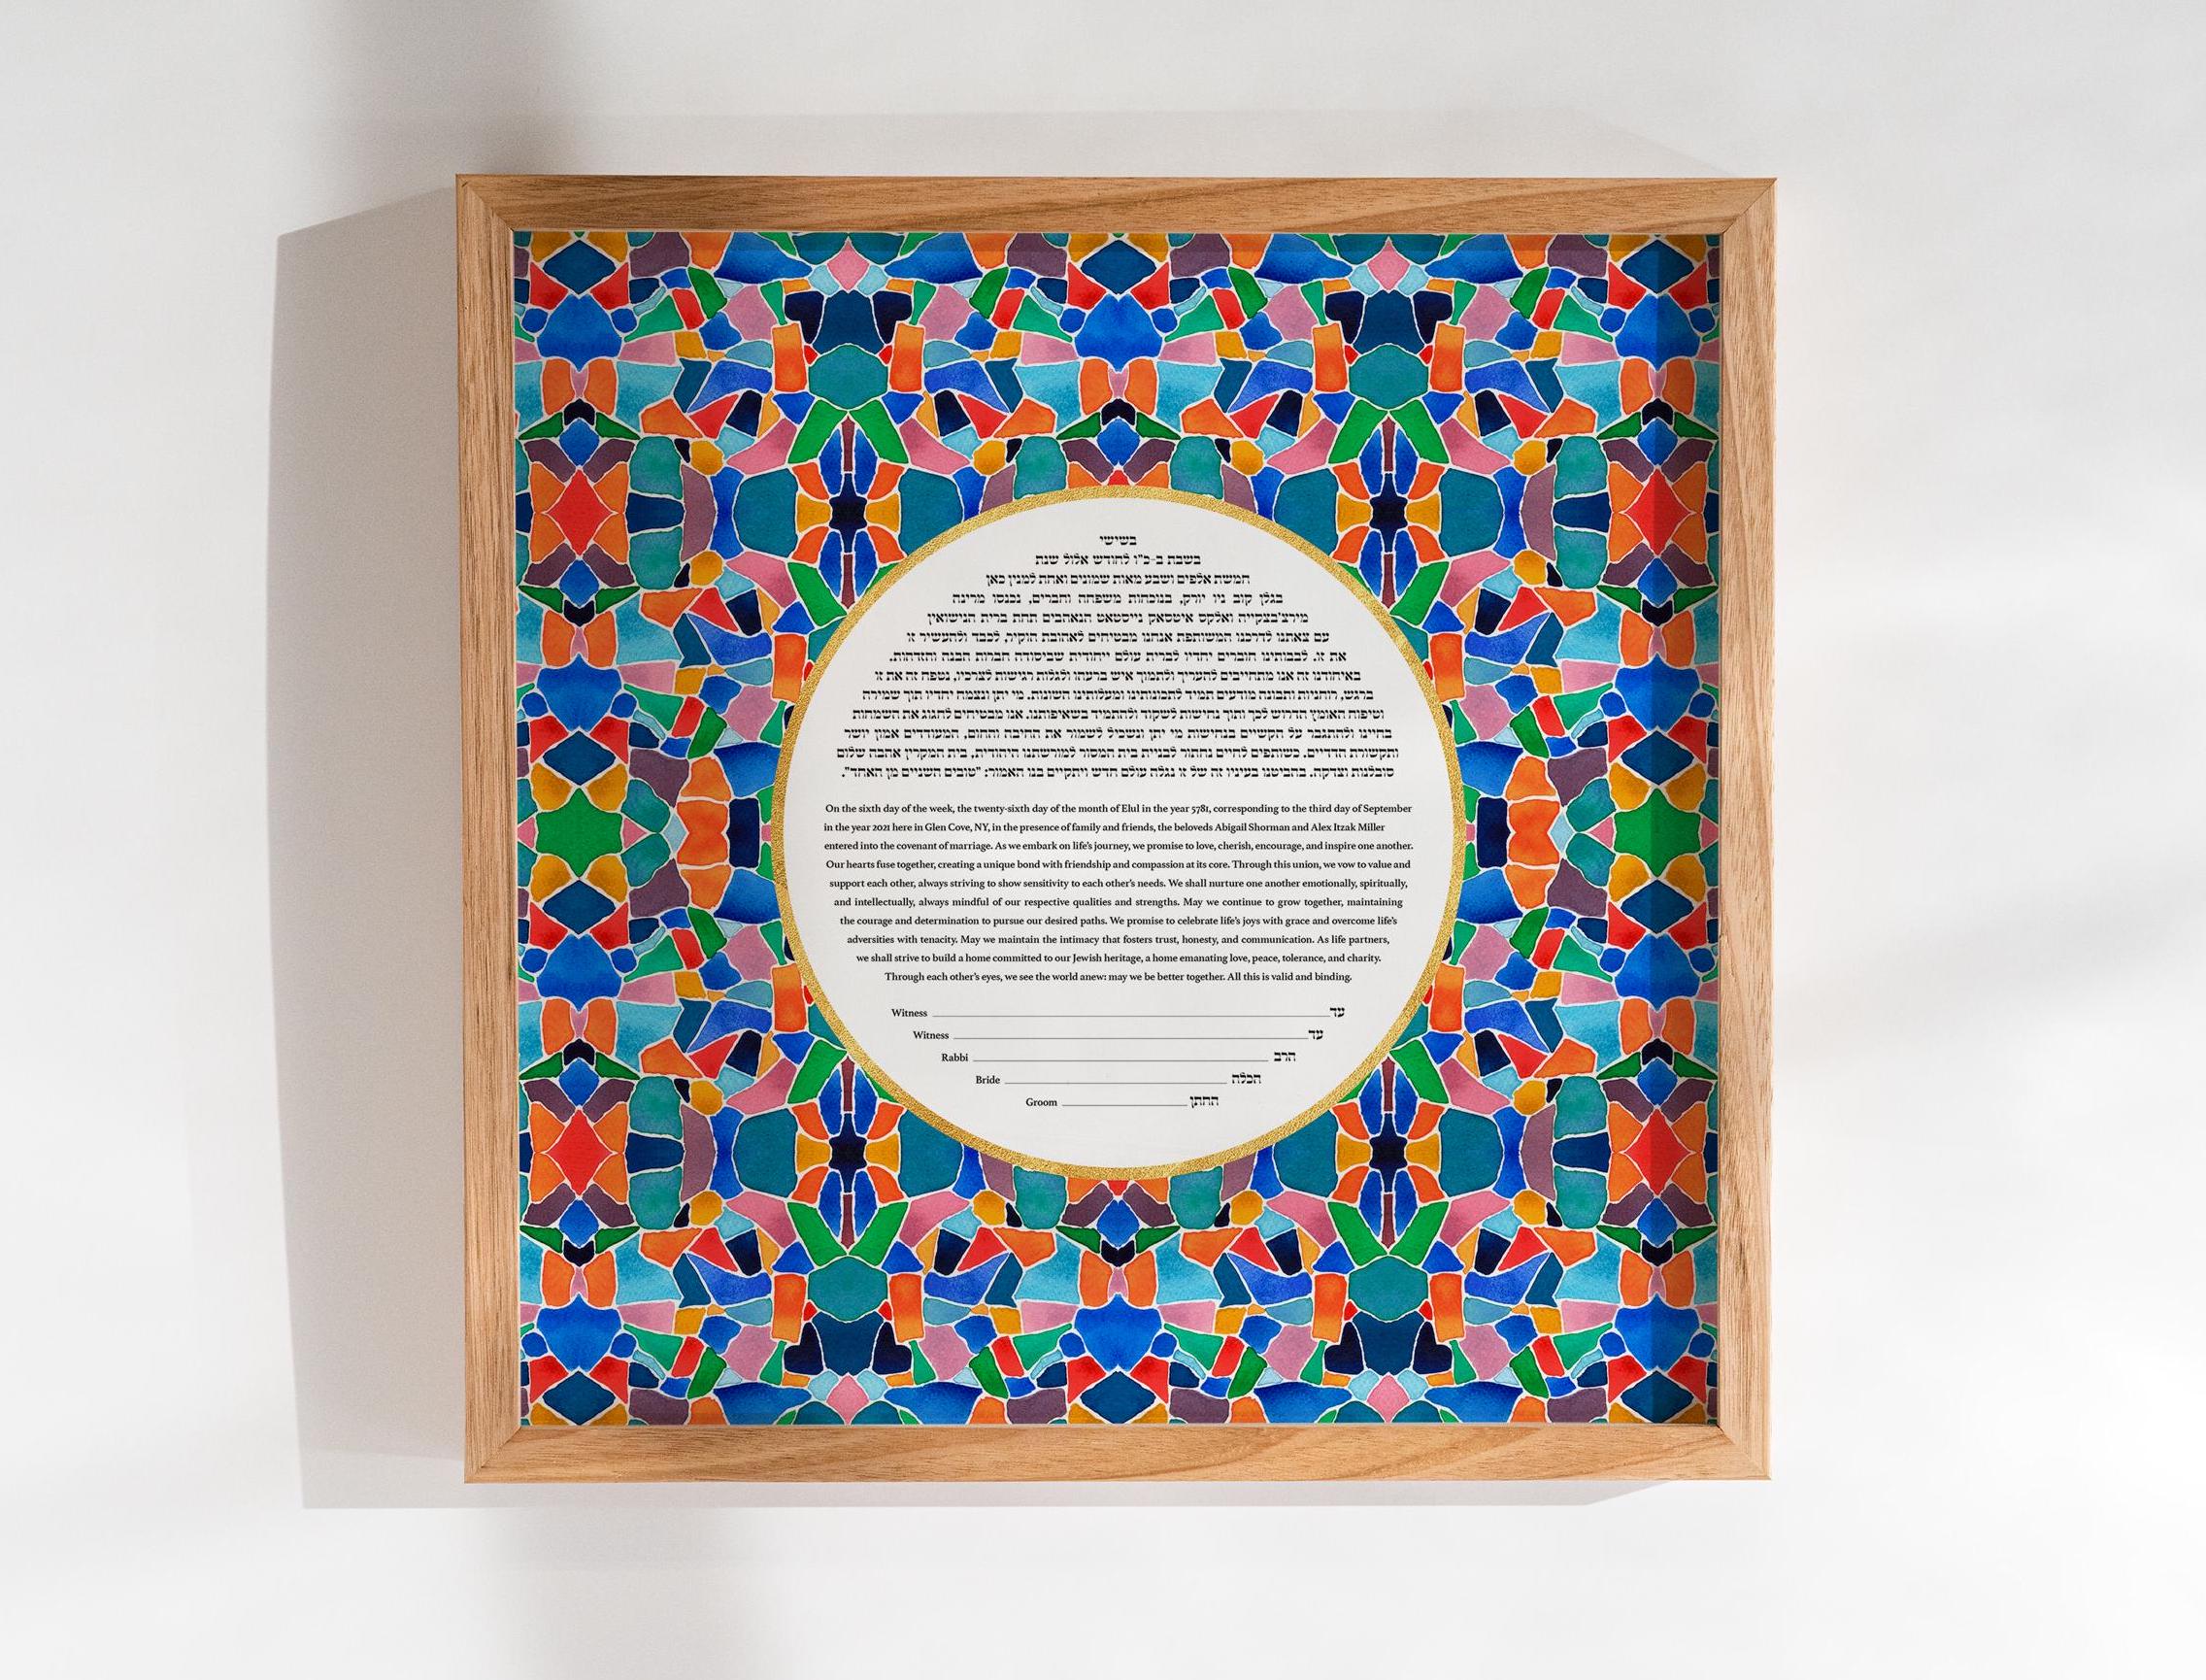 בשישי
בשבת ב-כ"ו לחודש אלול שנת
חמשת אלפים ושבע מאות שמונים ואחת למנין כאן
בגלן קוב ניו יורק, בנוכחות משפחה וחברים, נכנסו מרינה
מירצ'בצקייה ואלקס איטסאק נייסטאט הנאהבים תחת ברית הנישואין
עם צאתנו לדרכנו המשותפת אנחנו מבטיחים לאהובת הוקיר, לכבד ולהעשיר זו
את זו. לבבותינו חוברים יחדיו לברית עולם ייחודית שביסודה חברות הבנה והזדהות.
באיחודנו זה אנו מתחייבים להעריך ולתמוך איש ברעהו ולגלות רגישות לצרכיו, נטפח זה את זו
ברגש, רוחניות ותבונה מודעים תמיד לתכונותינו ומעלותינו השונות. מי יתן ונצמח יחדיו תוך שמירה
וטיפוח האומץ הדרוש לכך ותוך נחישות לשקוד ולהתמיד בשאיפותנו. אנו מבטיחים לחגוג את השמחות
בחיינו ולהתגבר על הקשיים בנחישות מי יתן ונשכיל לשמור את החיבה והחום, המעודדים אמון יושר
ותקשורת הדדיים. כשותפים לחיים נחתור לבניית בית המסור למורשתנו היהודית, בית המקרין אהבה שלום
סובלנות וצדקה. בהביטנו בעיניו זה של זו נגלה עולם חדש ויתקיים בנו האמור: "טובים השניים מן האחד".
On the sixth day of the week, the twenty-sixth day of the month of Elul in the year 5781, corresponding to the third day of September
in the year 2021 here in Glen Cove, NY, in the presence of family and friends, the beloveds Abigail Shorman and Alex Itzak Miller
entered into the covenant of marriage. As we embark on life's journey, we promise to love, cherish, encourage, and inspire one another.
Our hearts fuse together, creating a unique bond with friendship and compassion at its core. Through this union, we vow to value and
support each other, always striving to show sensitivity to each other's needs. We shall nurture one another emotionally, spiritually,
and intellectually, always mindful of our respective qualities and strengths. May we continue to grow together, maintaining
the courage and determination to pursue our desired paths. We promise to celebrate life's joys with grace and overcome life's
adversities with tenacity. May we maintain the intimacy that fosters trust, honesty, and communication. As life partners,
we shall strive to build a home committed to our Jewish heritage, a home emanating love, peace, tolerance, and charity.
Through each other's eyes, we see the world anew: may we be better together. All this is valid and binding.
Witness עד
Witness עד
Rabbi הרב
Bride הכלה
Groom החתן